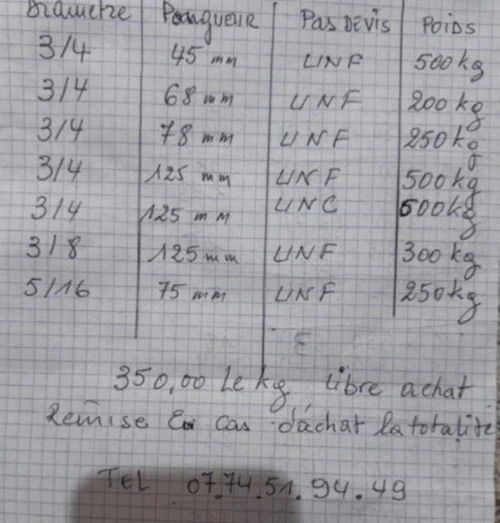 Diametre Longueur Pas DEVIS POIDS
3/4 45 mm UNF 500 kg
3/4 68 mm UNF 200 kg
3/4 78 mm UNF 250 kg
3/4 125 mm UNF 500 kg
3/4 125 mm UNC 600 kg
3/8 125 mm UNF 300 kg
5/16 75 mm UNF 250 kg
350,00 le kg libre achat
Remise En cas d'achat la totalité
TEL 07.74.51.94.49